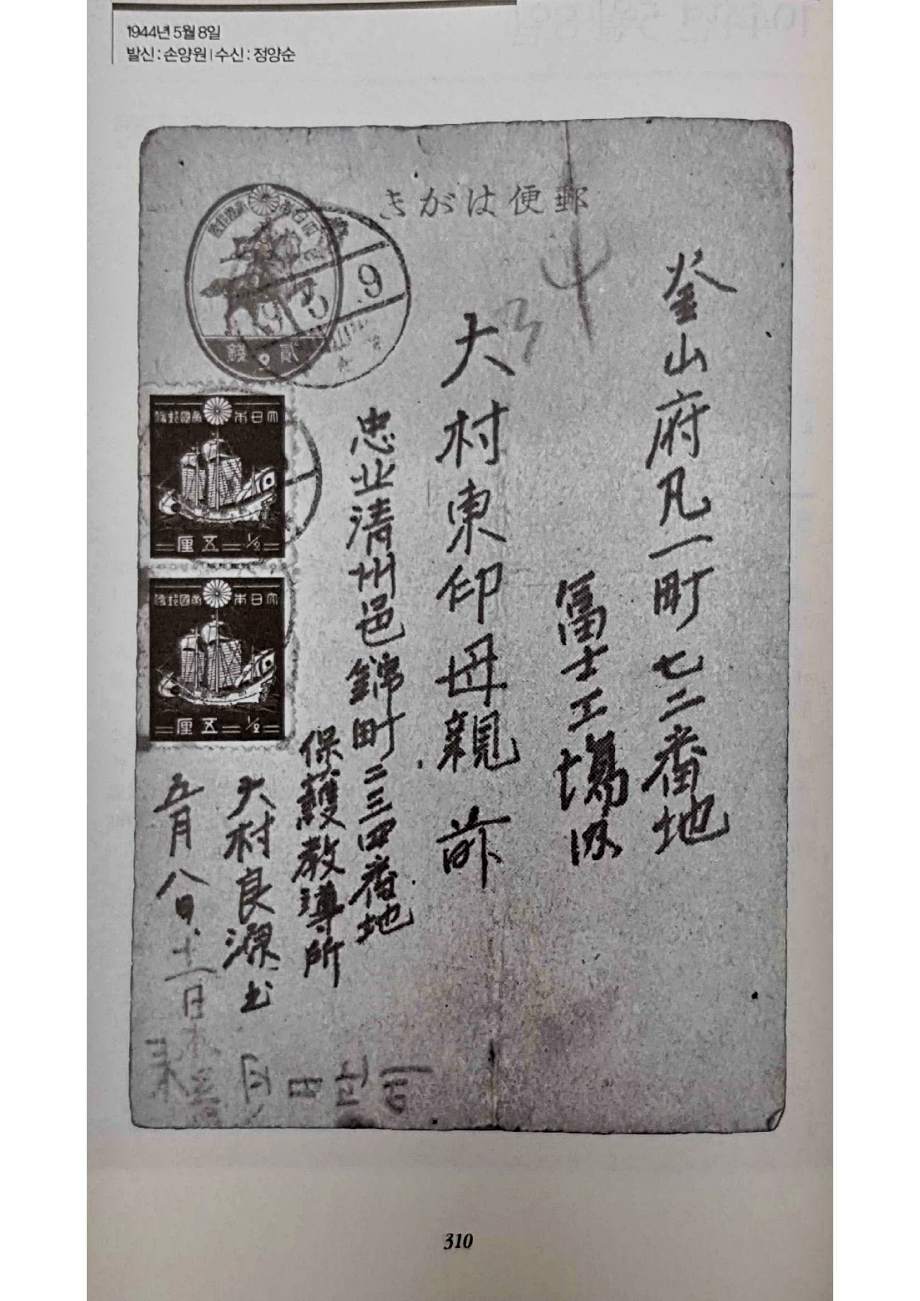 1944년 5월 8일
발신 : 손양원 | 수신 : 정양순
きがは便郵
釜山府凡一町七二番地
富士工場內
大村東印母親 前
忠北清州邑錦町二三四番地
保護教導所
大村良源
五月八日
十一日
大日本帝國郵便
五厘
1/2
大日本帝國郵便
五厘
1/2
9
310